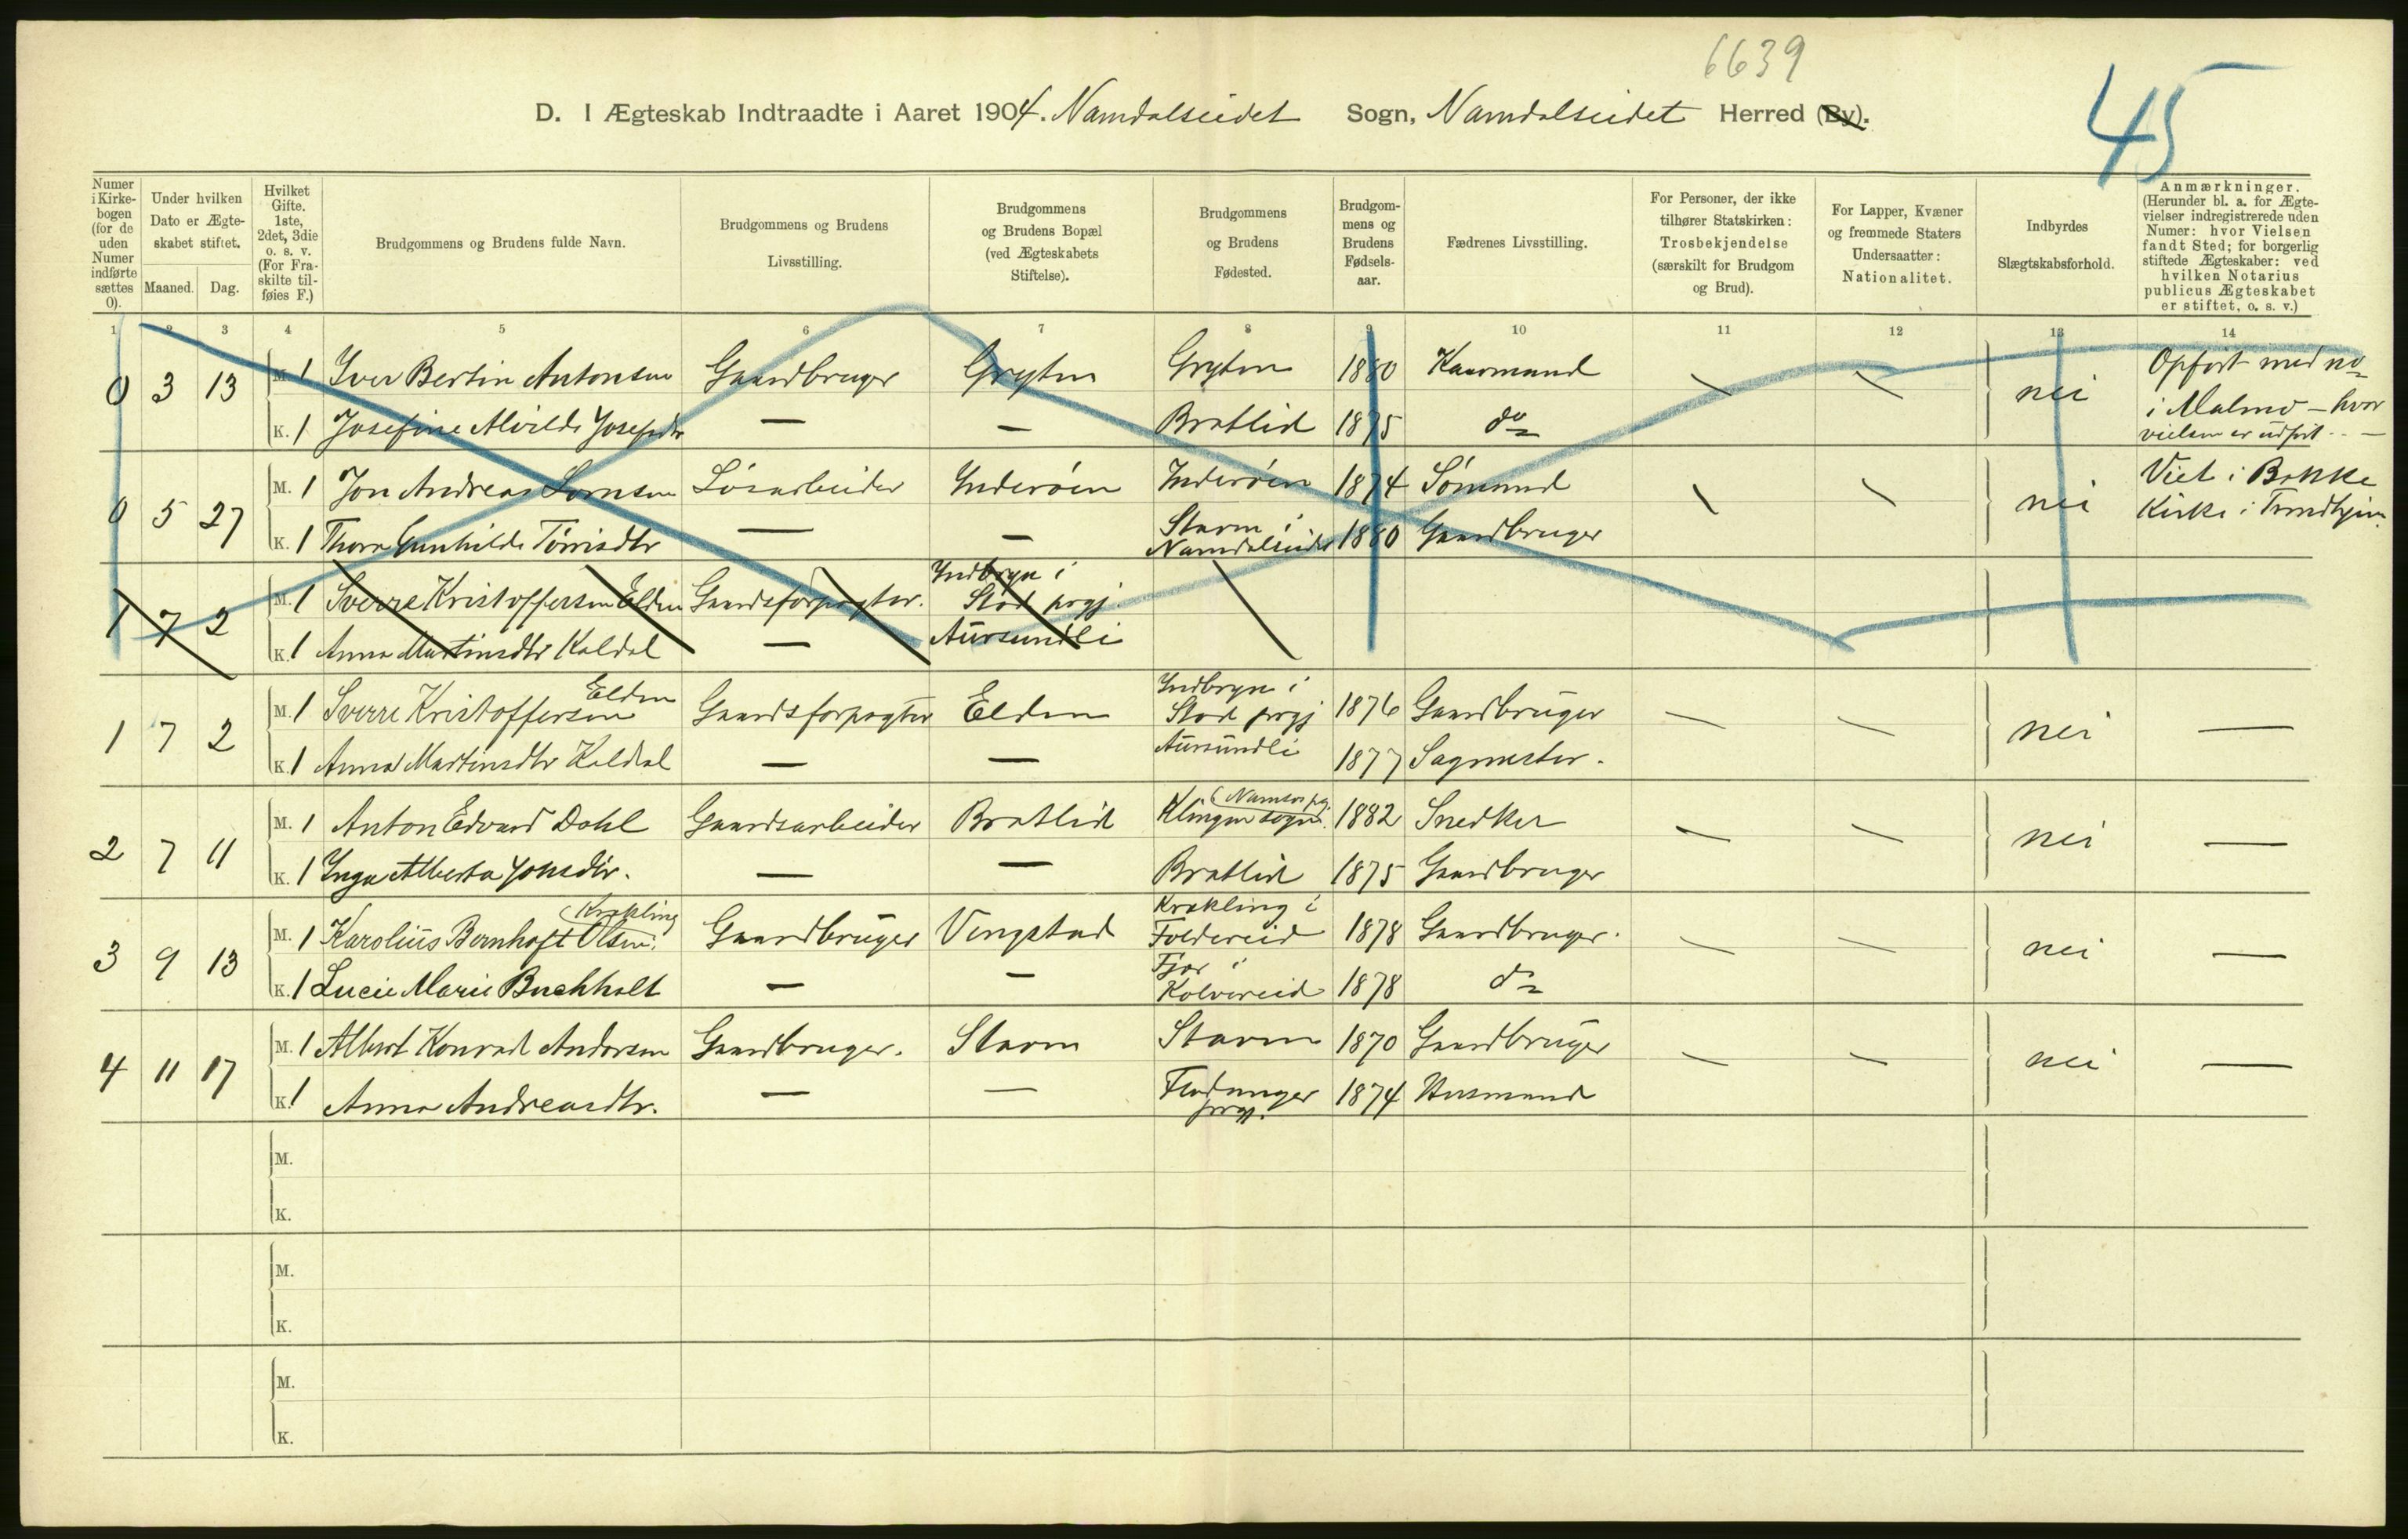 6639
45
D. I Ægteskab Indtraadte i Aaret 1904. Namdalseidet Sogn, Namdalseidet Herred (By).
Numer i Kirkebogen (for de uden Numer indførte sættes 0).
Under hvilken Dato er Ægteskabet stiftet.
Maaned. Dag.
Hvilket Gifte. 1ste, 2det, 3die o. s. v. (For Fraskilte tilføies F.)
Brudgommens og Brudens fulde Navn.
Brudgommens og Brudens Livsstilling.
Brudgommens og Brudens Bopæl (ved Ægteskabets Stiftelse).
Brudgommens og Brudens Fødested.
Brudgommens og Brudens Fødselsaar.
Fædrenes Livsstilling.
For Personer, der ikke tilhører Statskirken: Trosbekjendelse (særskilt for Brudgom og Brud).
For Lapper, Kvæner og fremmede Staters Undersaatter: Nationalitet.
Indbyrdes Slægtskabsforhold.
Anmærkninger. (Herunder bl. a. for Ægtevielser indregistrerede uden Numer: hvor Vielsen fandt Sted; for borgerlig stiftede Ægteskaber: ved hvilken Notarius publicus Ægteskabet er stiftet, o. s. v.)
1 2 3 4 5 6 7 8 9 10 11 12 13 14
0 3 13 M. 1 Iver Bertin Antonsen Gaardbruger Gryten Gryten 1880 Kaarmand nei Opført med no
K. 1 Josefine Alvilde Josefsdtr — — Bratlid 1875 do i Malmo – hvor
vielsen er udført. —
0 5 27 M. 1 Jon Andreas Lornsen Løsarbeider Inderøen Inderøen 1874 Sømand nei Viet i Bakke
K. 1 Thora Gunhilde Tørrisdtr — — Staren i Namdalseidet 1880 Gaardbruger Kirke i Trondhjem.
1 7 2 M. 1 Sverre Kristoffersen Elden Gaardsforpagter. Indbryn i Stod prgj.
K. 1 Anna Martinsdtr Kaldal — Aursundli
1 7 2 M. 1 Sverre Kristoffersen Elden Gaardsforpagter Elden Indbryn i Stod prgj 1876 Gaardbruger — — nei —
K. 1 Anna Martinsdtr Kaldal — — Aursundli 1877 Sagmester.
2 7 11 M. 1 Anton Edvard Dahl Gaardsarbeider Bratlid Klingen sogn. (Namsos pg. 1882 Snedker — — nei —
K. 1 Inga Alberta Jonsdtr. — — Bratlid 1875 Gaardbruger
3 9 13 M. 1 Karolius Bernhoft Olsen. (Krækling Gaardbruger Vengstad Krækling i Foldereid 1878 Gaardbruger. — — nei —
K. 1 Lucie Marie Buchholt — — Fjær i Kolvereid 1878 do
4 11 17 M. 1 Albert Konrad Andersen Gaardbruger. Staren Staren 1870 Gaardbruger — — nei —
K. 1 Anna Andreasdtr. — — Fladanger prgj. 1874 Husmand
M.
K.
M.
K.
M.
K.